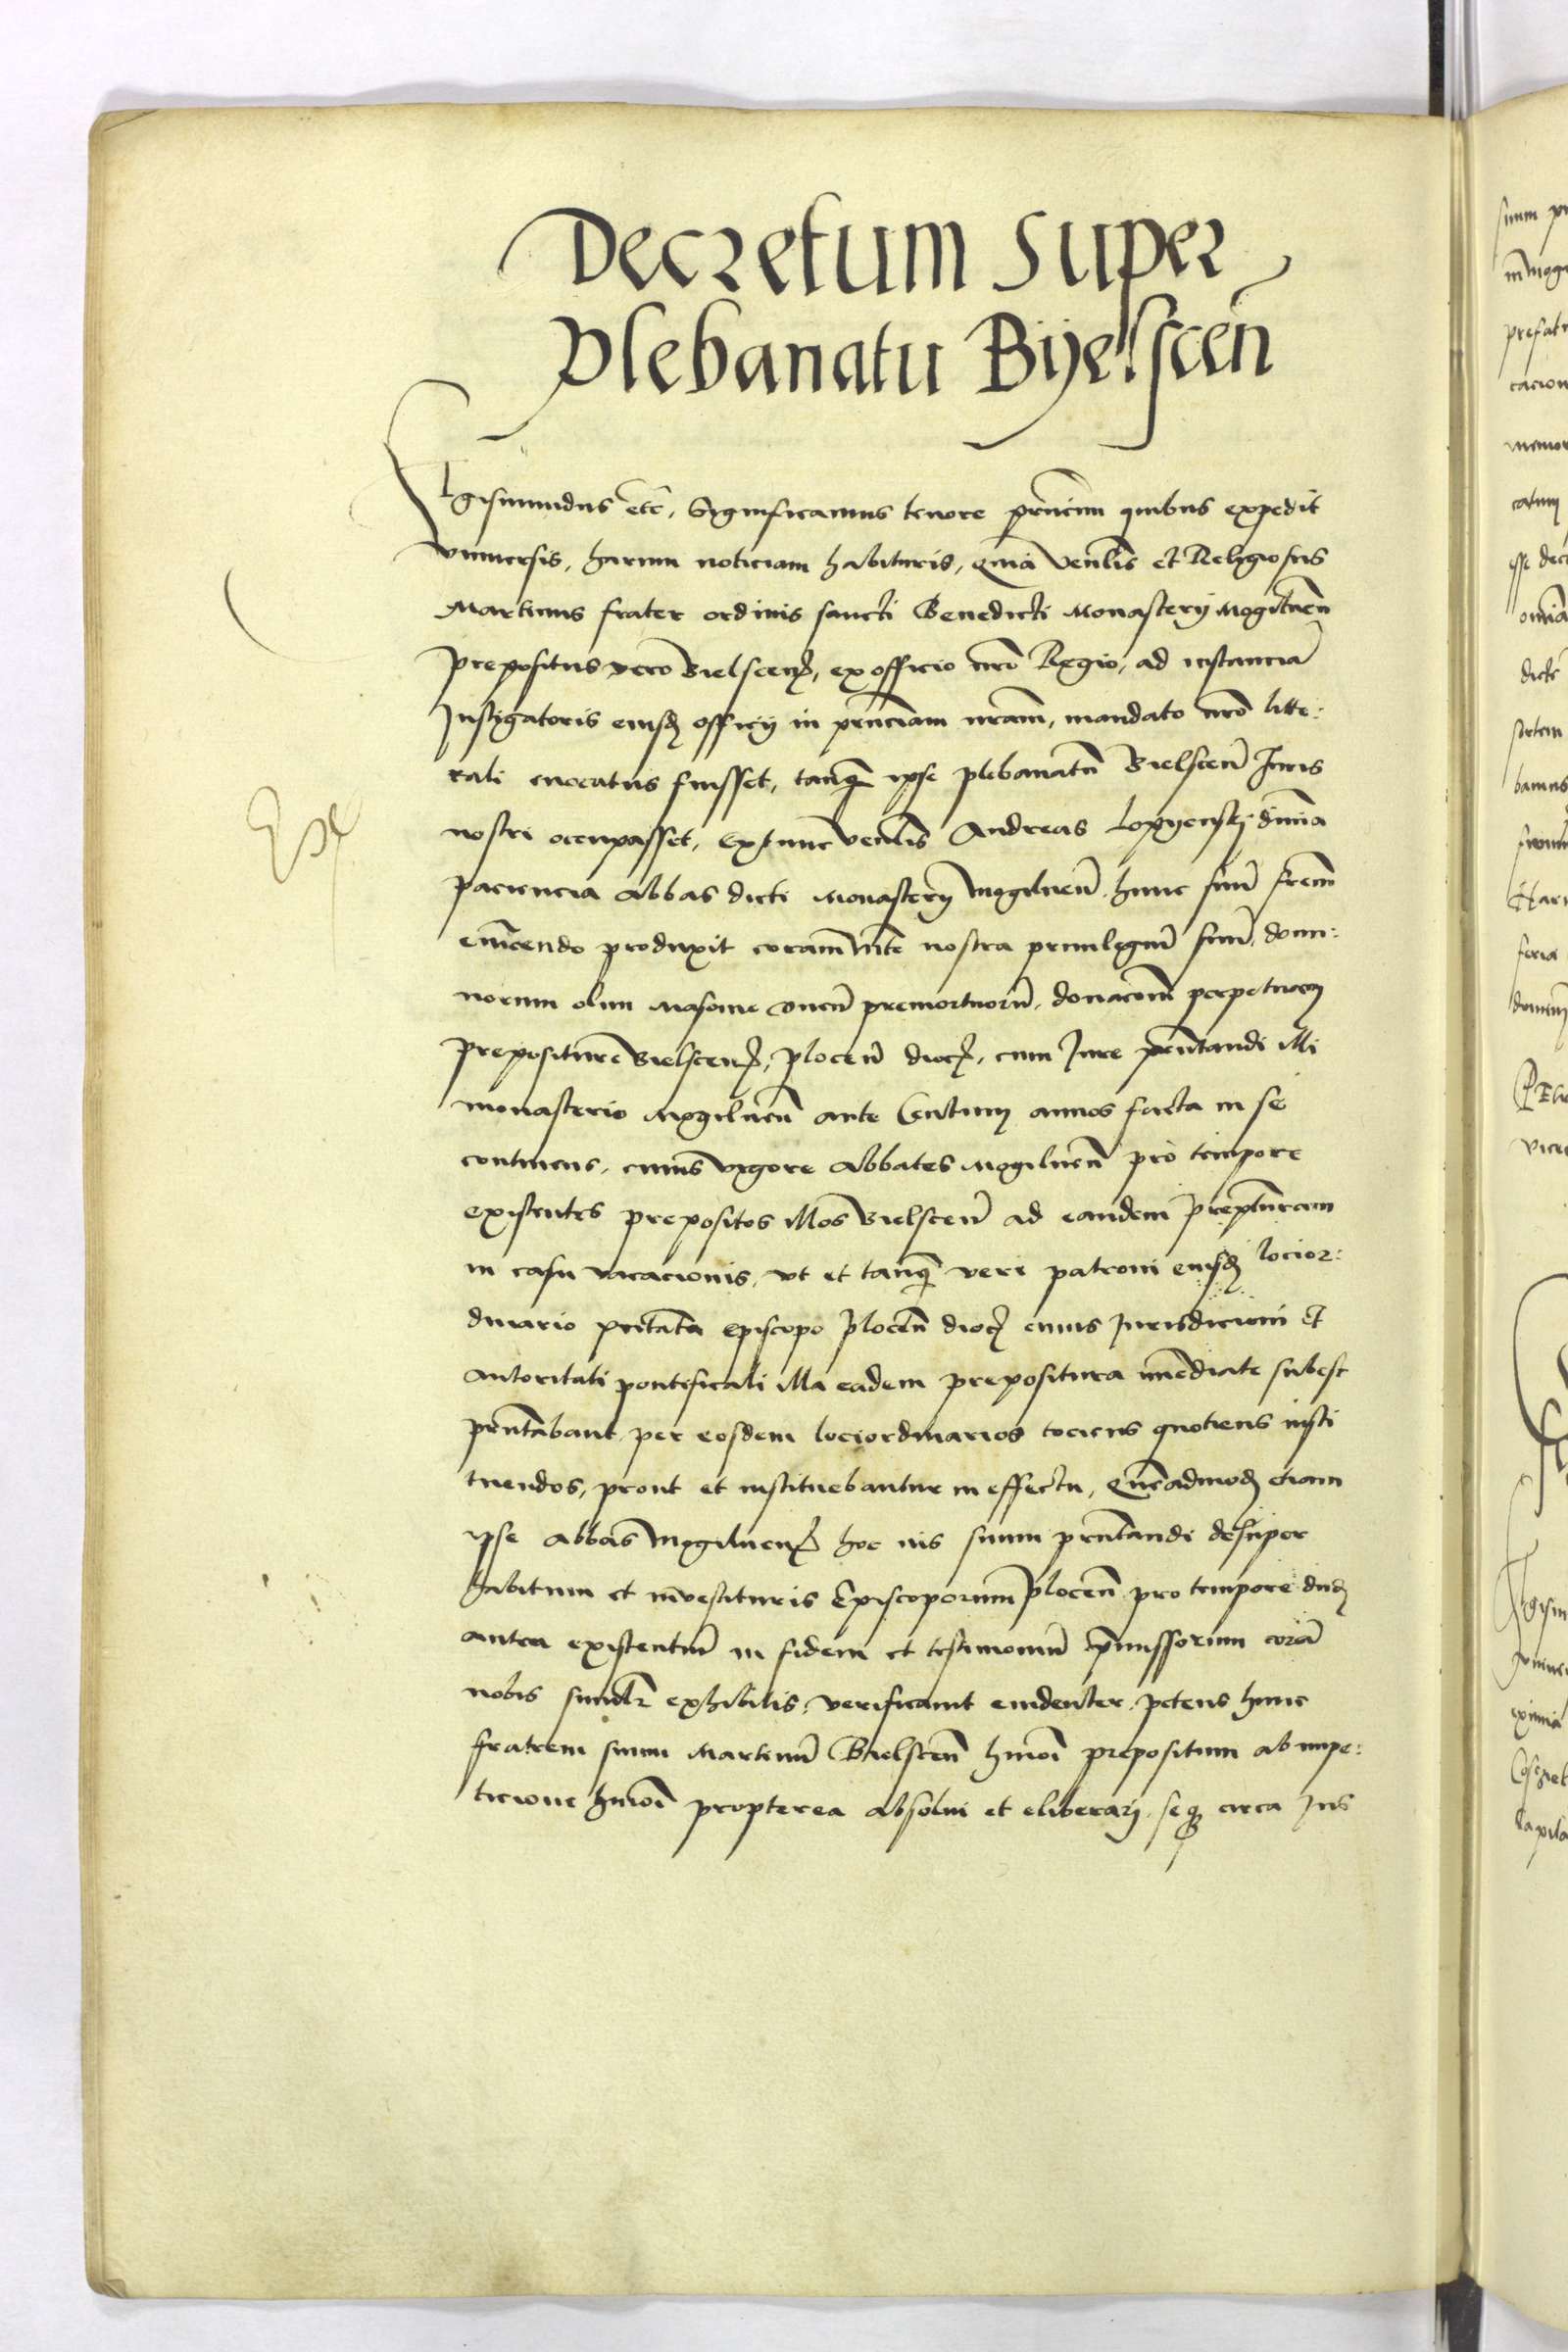 Decretum super
Plebanatu Byelscen̄
Sigismundus etc̄, Significamus tenore pn̄tium quibus expedit
vniuersis, harum noticiam habituris, Quia Ven̄lis et Religiosus
Martinus frater ordinis sancti Benedicti Monasterij Mogilnen̄
prepositus vero Bielscen̄, ex officio nrō Regio, ad instanciā
Instigatoris eiusd officij in pn̄ciam nr̄am, mandato nrō litte:
rali euocatus fuisset, tanq̄ ipse plebanatū Bielscen̄ Iuris
nostri occupasset, Extunc ven̄lis Andreas Lopyenskj diuina
paciencia Abbas dicti Monasterij Mogilnen̄ hunc suū frēm
euincendo produxit coram nostra priuilegiū suū, domi:
norum olim Masouie ducū premortuorū, donacōm perpetuam
prepositure Bielscen̄, plocen̄ dioc, cum Jure pn̄tandi illi
monasterio Mogilnen̄ ante Centum annos facta in se
continens, cuius vigore Abbates Mogilnen̄ pro tempore
existentes prepositos illos Bielscen̄ ad eandem prepturam
in casu vacacionis, vt et tanq̄ veri patroni eiusd locior:
dinario Episcopo plocen̄ dioc cuius Jurisdicioni et
autoritati pontificali illa eadem prepositura īmediate subest
pn̄tabant per eosdem lociordinarios tociens quotiens insti
tuendos, prout et instituebantur in effectu, Quēadmod etiam
ipse Abbas Mogilnen̄ hoc ius suum pn̄tandi desuper
habitum et inuestituris Episcoporum plocen̄ pro tempore dud
antea existentiū in fidem et testimoniū p̄missorum corā
nobis exhibitis, verificauit euidenter, petens hunc
fratrem suum Martinū Bielscen̄ hmōi prepositum ab impe:
ticione hmōi propterea absolui et eliberarj, seq circa Jus